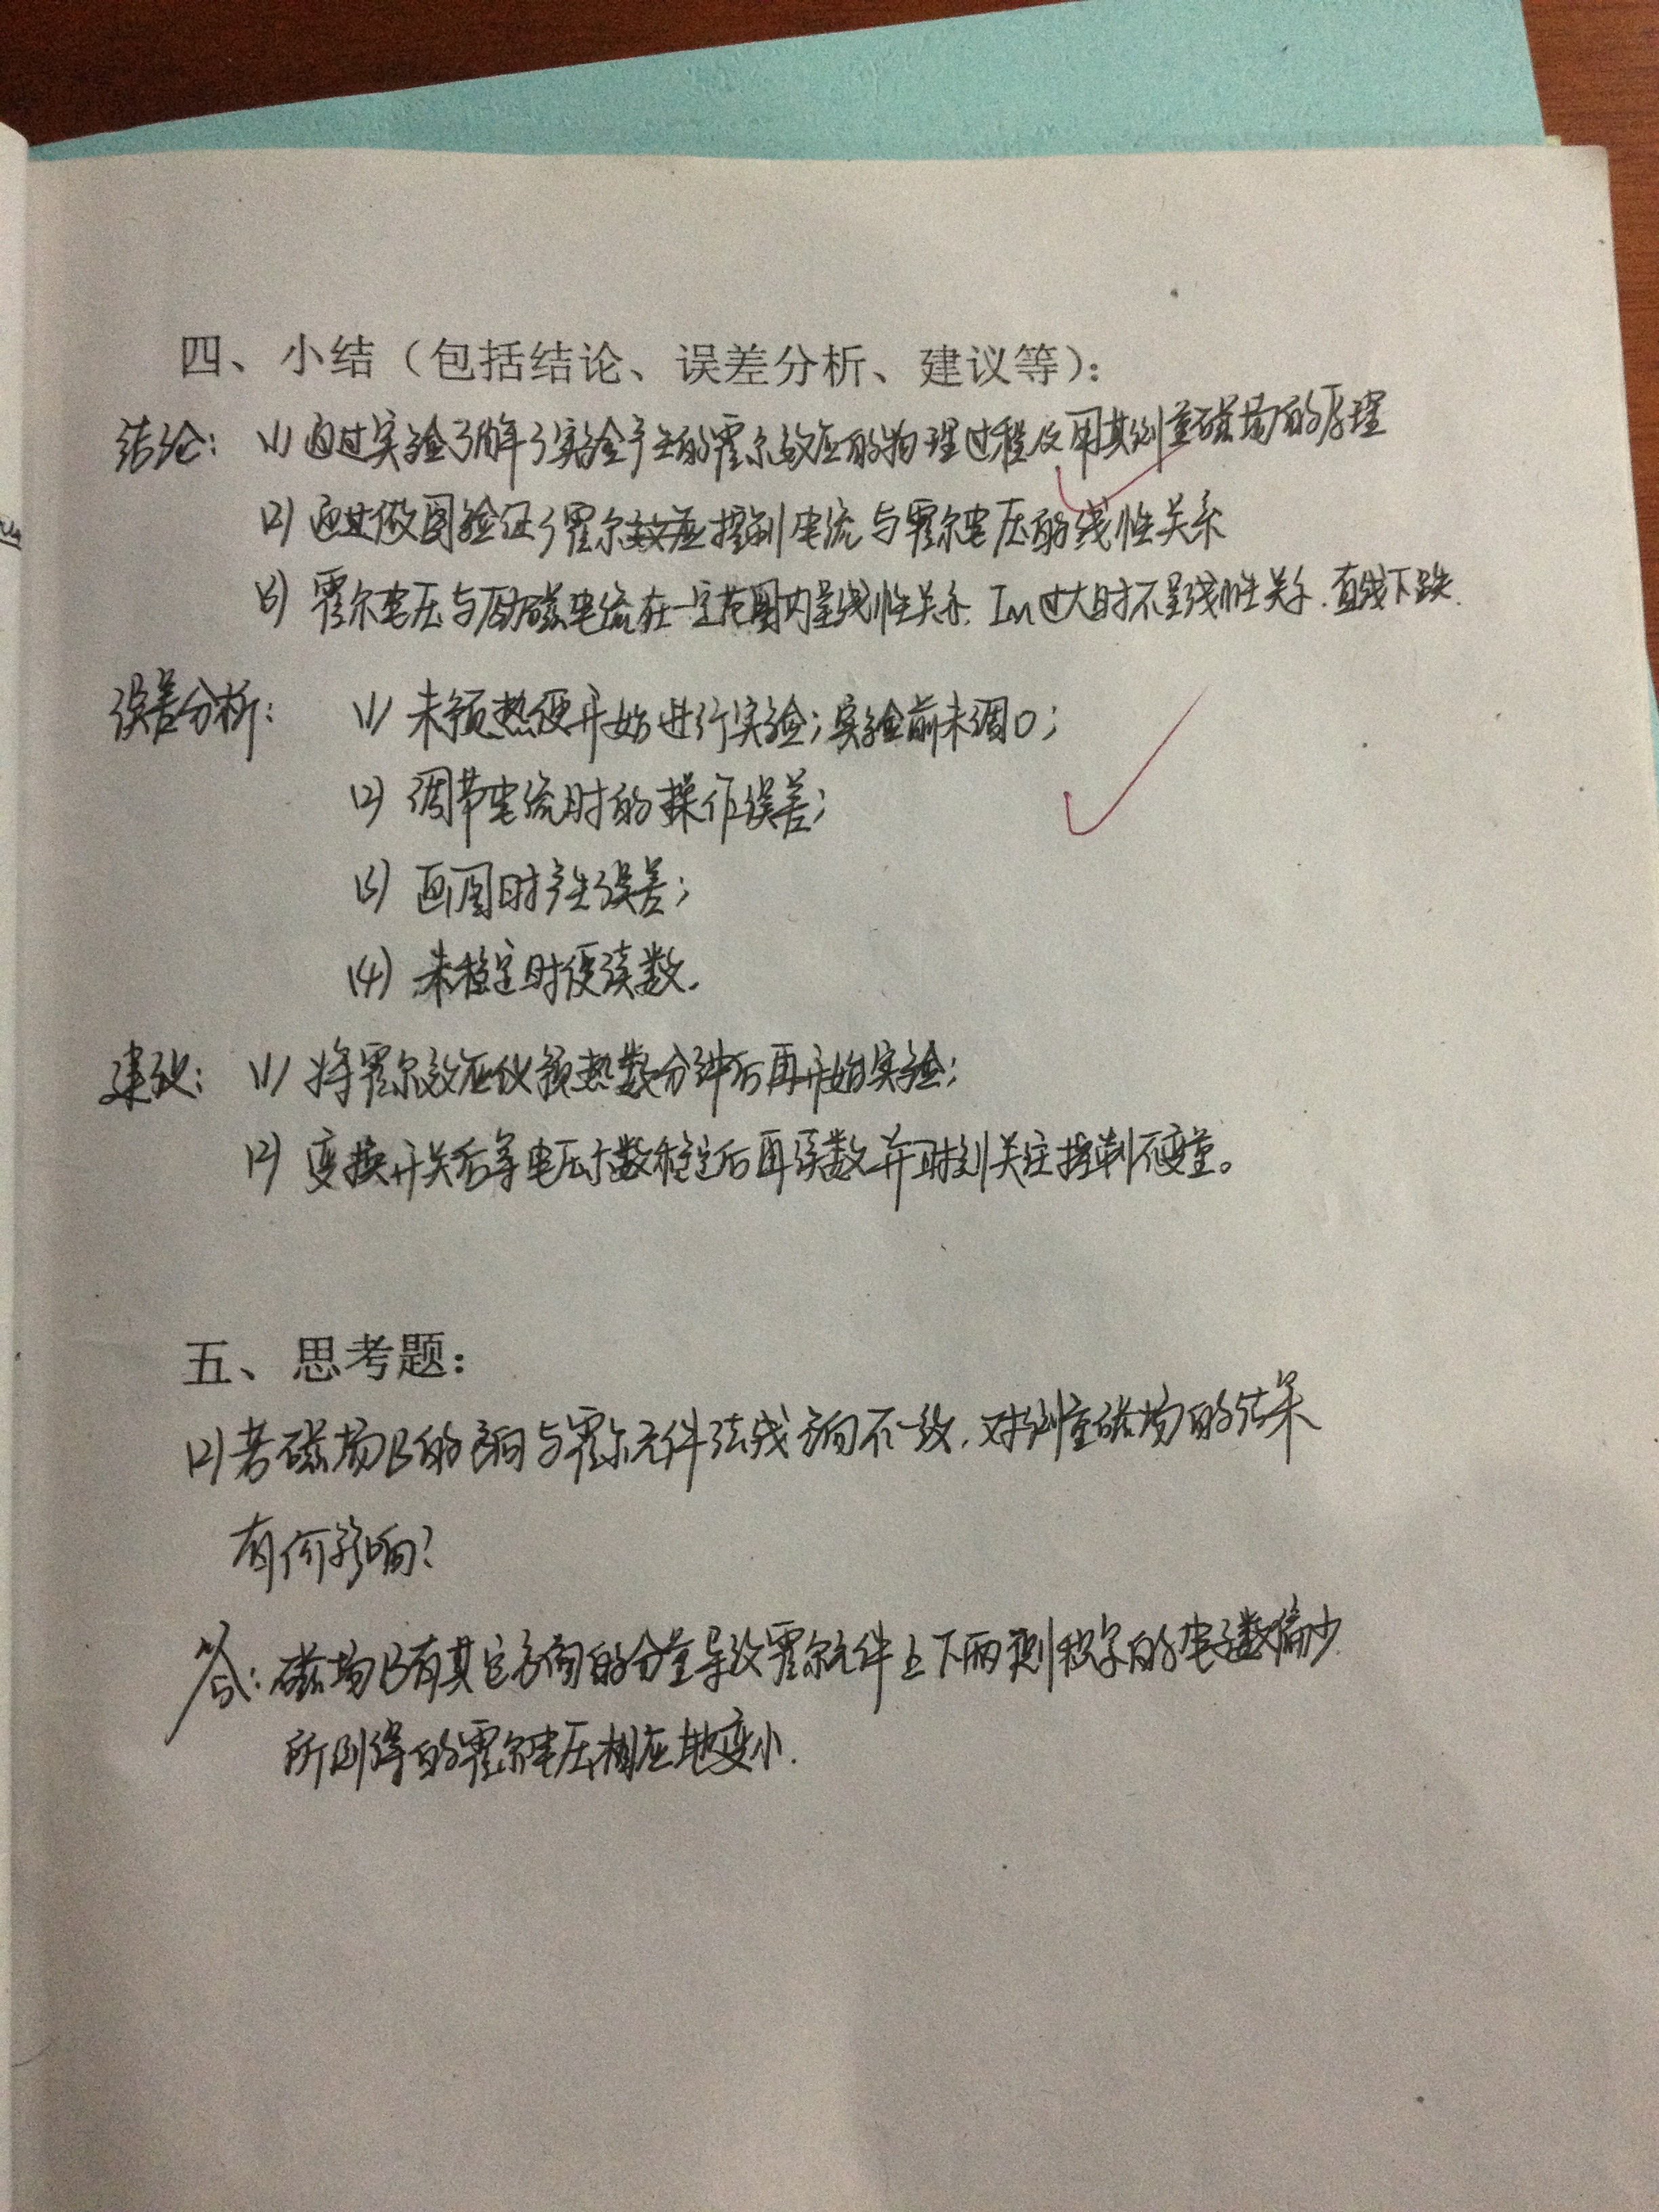 四、小结（包括结论、误差分析、建议等）：
结论：(1) 通过实验了解了实验产生的霍尔效应的物理过程及用其测量磁场的原理
(2) 通过做图验证了霍尔效应控制电流与霍尔电压的线性关系
(3) 霍尔电压与励磁电流在一定范围内呈线性关系. Im过大时不呈线性关系. 直线下跌.
误差分析：(1) 未预热便开始进行实验；实验前未调0；
(2) 调节电流时的操作误差；
(3) 画图时产生误差；
(4) 未稳定时便读数.
建议：(1) 将霍尔效应仪预热数分钟后再开始实验；
(2) 变换开关后等电压示数稳定后再读数并时刻关注控制不变量。
五、思考题：
(2) 若磁场B的方向与霍尔元件法线方向不一致. 对测量磁场的结果
有何影响？
答：磁场B有其它方向的分量导致霍尔元件上下两侧积字的电子数偏少.
所测得的霍尔电压相应地变小.